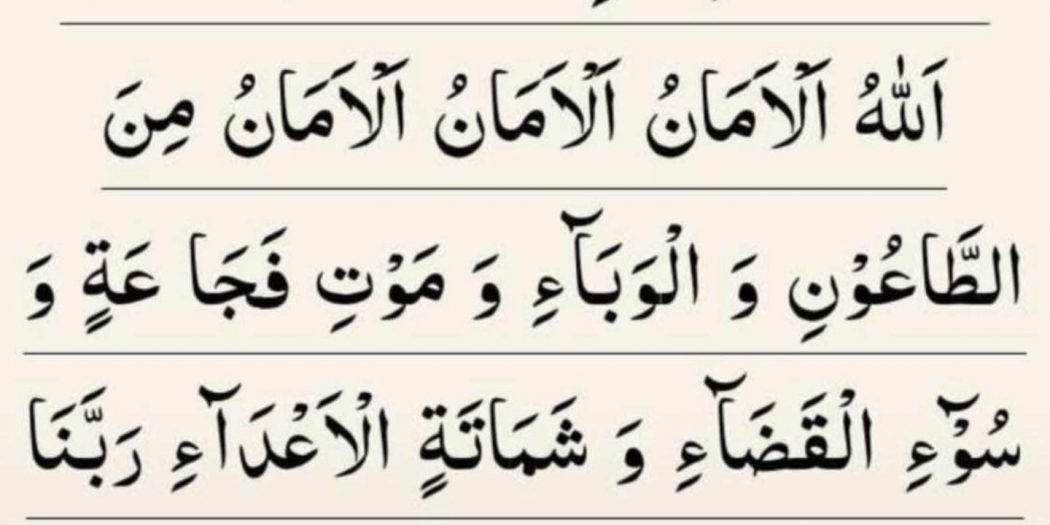 اَللّٰهُ اَلْاَمَانُ اَلْاَمَانُ اَلْاَمَانُ مِنَ
الطَّاعُوْنِ وَ الْوَبَآءِ وَ مَوْتِ فَجَا عَةٍ وَ
سُوْٓءِ الْقَضَآءِ وَ شَمَاتَةٍ الْاَعْدَآءِ رَبَّنَا